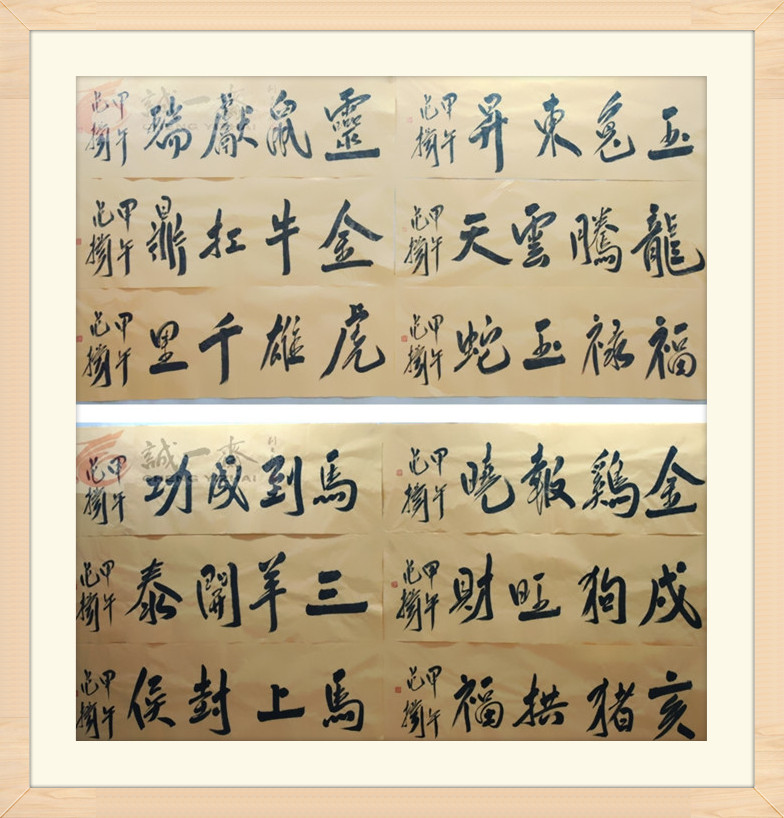 靈鼠獻瑞 甲午
金牛扛鼎 甲午
虎雄千里 甲午
玉兔東昇 甲午
龍騰雲天 甲午
福禄玉蛇 甲午
馬到成功 甲午
三羊開泰 甲午
馬上封侯 甲午
金鷄報曉 甲午
戌狗旺財 甲午
亥猪拱福 甲午
誠一斋
誠一斋